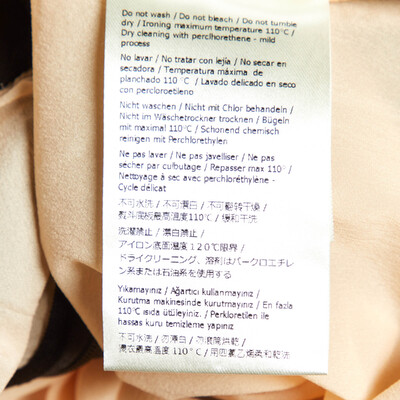 Do not wash / Do not bleach / Do not tumble
dry / Ironing maximum temperature 110°C /
Dry cleaning with perclhorethene - mild
process
No lavar / No tratar con lejía / No secar en
secadora / Temperatura máxima de
planchado 110°C / Lavado delicado en seco
con percloroetileno
Nicht waschen / Nicht mit Chlor behandeln /
Nicht im Wäschetrockner trocknen / Bügeln
mit maximal 110°C / Schonend chemisch
reinigen mit Perchlorethylen
Ne pas laver / Ne pas javelliser / Ne pas
sécher par culbutage / Repasser max 110° /
Nettoyage à sec avec perchloréthylène -
Cycle délicat
不可水洗 / 不可漂白 / 不可翻转干燥 /
熨斗底板最高温度110℃ / 缓和干洗
洗濯禁止 / 漂白禁止 /
アイロン底面温度120℃限界 /
ドライクリーニング、溶剤はパークロエチレ
ン系または石油系を使用する
Yıkamayınız / Ağartıcı kullanmayınız /
Kurutma makinesinde kurutmayınız / En fazla
110°C ısıda ütüleyiniz. / Perkloretilen ile
hassas kuru temizleme yapınız
不可水洗 / 勿漂白 / 勿滾筒烘乾 /
燙衣最高溫度 110°C / 用四氯乙烯柔和乾洗